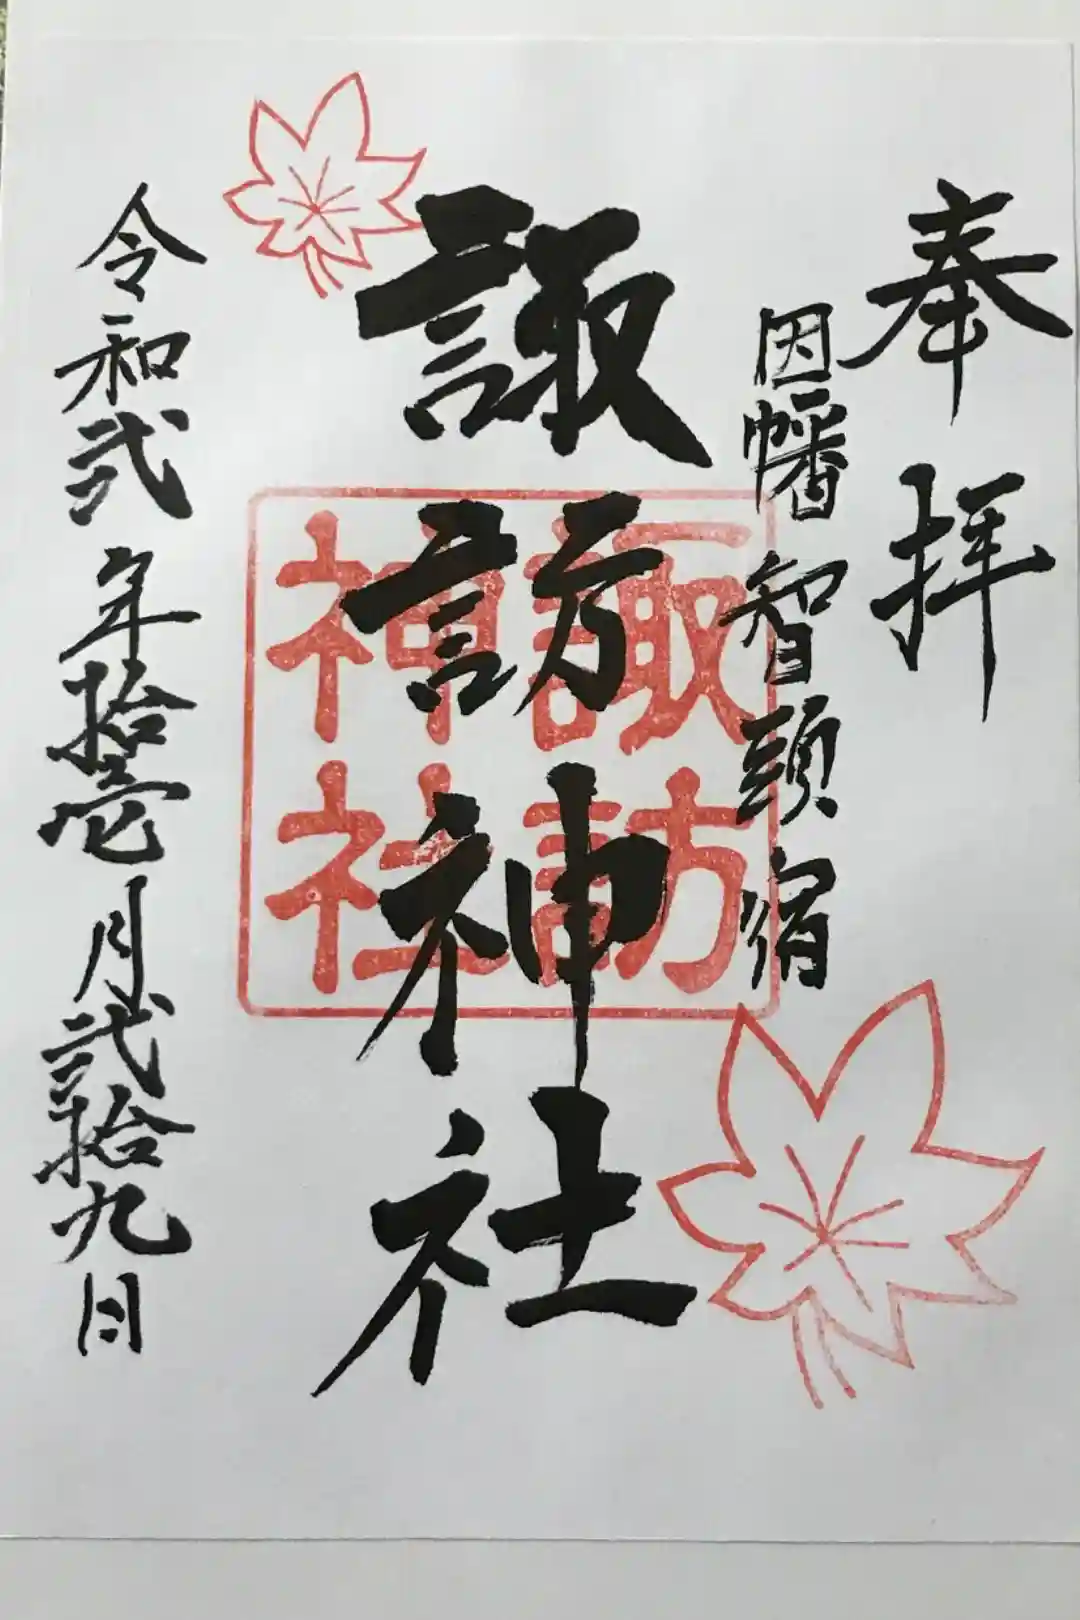 奉拝
因幡智頭宿
諏訪神社
諏訪
神社
令和弐年拾壱月弐拾九日